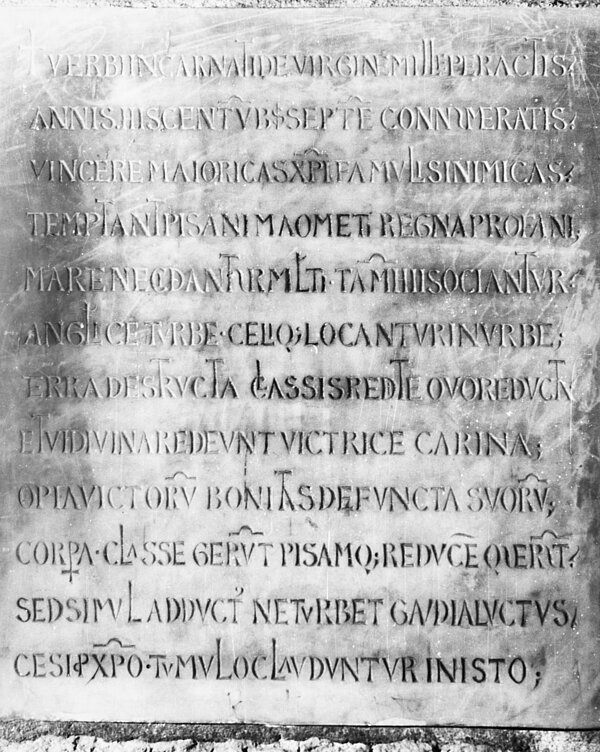 † VERBI INCARNATI DE VIRGINE MILLE PERACTIS;
ANNIS IIIS CENTV̅ BIS SEPTE̅ CONNVMERATIS;
VINCERE MAIORICAS XP̅I FAMVLIS INIMICAS;
TEMPTANT PISANI MAOMETI REGNA PROFANI;
MARE NECDANTVR MVLTI TAM̅ HII SOCIANTVR
ANGLICE TVRBE·CELIQ; LOCANTVR IN VRBE;
TERRA DESTRVCTA CLASSIS REDIT EQVORE DVCTA
ET VI DIVINA REDEVNT VICTRICE CARINA;
O PIA VICTORV̅ BONITAS DEFVNCTA SVORV̅;
CORPA·CLASSE GERV̅T PISAMQ; REDVCE̅ QVERV̅T;
SED SIMVL ADDVCT' NE TVRBET GAVDIA LVCTVS;
CESI P XP̅O·TVMVLO CLAVDVNTVR IN ISTO;